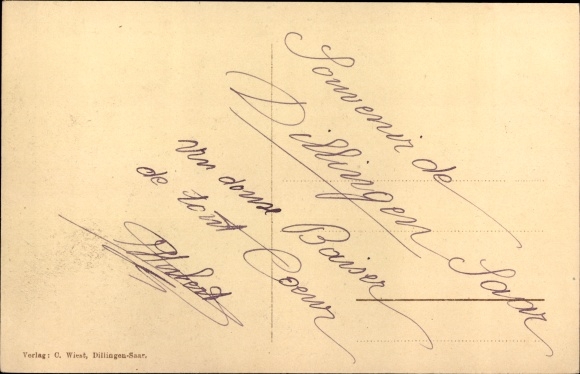 Souvenir de
Dillingen Saar
un doux Baiser
de tout Coeur
Verlag: C. Wiest, Dillingen-Saar.